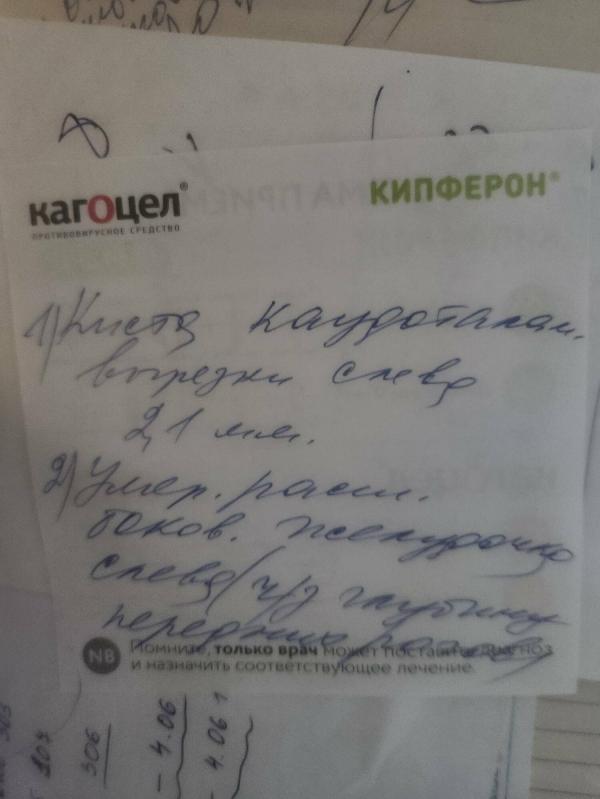 кагоцел®
ПРОТИВОВИРУСНОЕ СРЕДСТВО
КИПФЕРОН®
1) Киста каудоталам.
вырезки слева
2,1 мм.
2) Умер. расш.
боков. желудочка
слева (ч/з глубину
передних рогов)
NB Помните, только врач может поставить диагноз
и назначить соответствующее лечение.
103
306
- 4.06
- 4.06